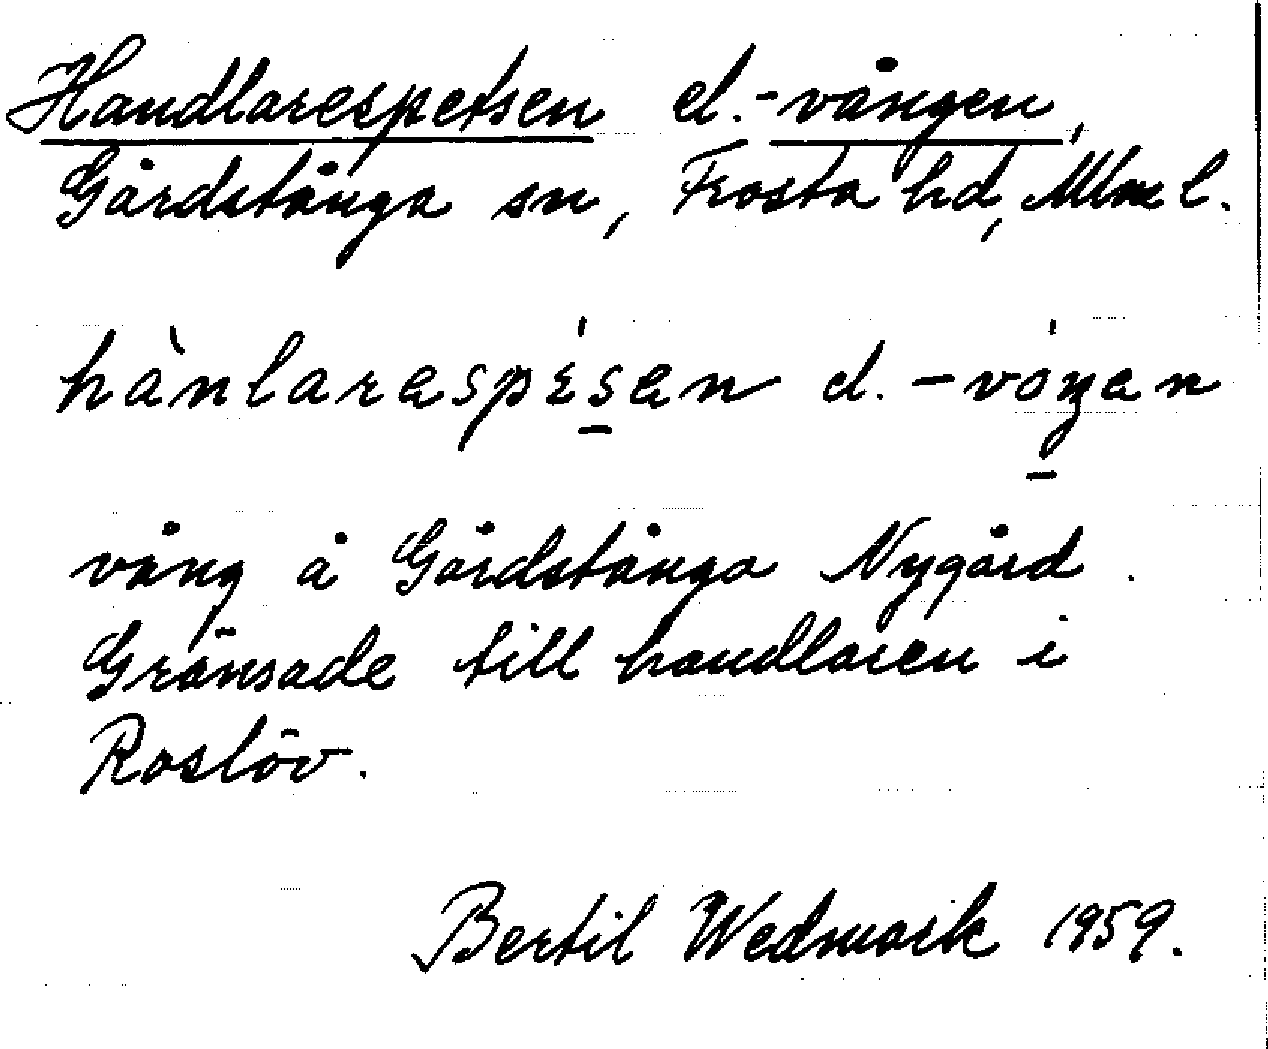 Handlarespetsen el. -vången,
Gårdstånga sn, Frosta hd, Mlm l.
hànlarespɛ́sen el. -vóŋen
vång å Gårdstånga Nygård.
Gränsade till handlaren i
Roslöv.
Bertil Wedmark 1959.